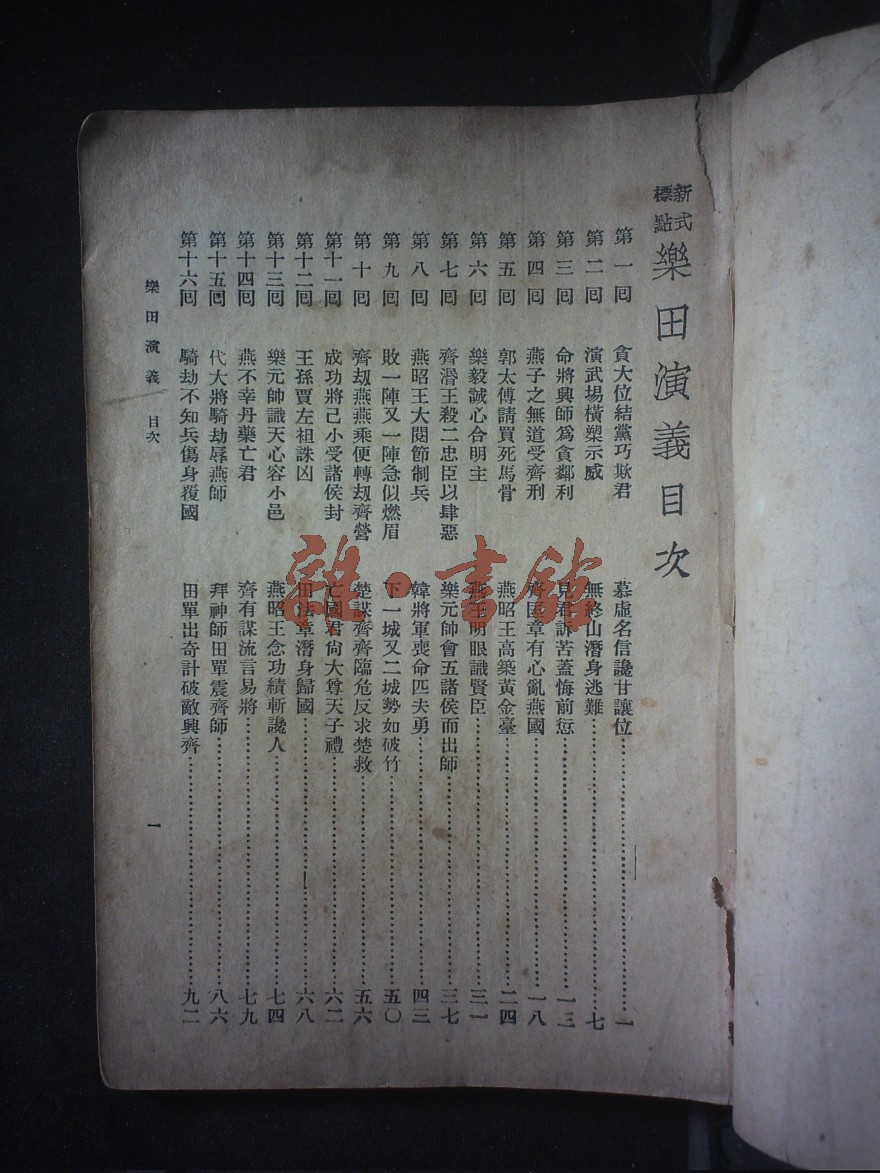 新式標點 樂田演義目次
第一回 貪大位結黨巧欺君 慕虛名信讒甘讓位 一
第二回 演武場橫槊示威 無終山潛身逃難 七
第三回 命將興師爲貪鄰利 見君訴苦蓋悔前愆 一三
第四回 燕子之無道受齊刑 齊匡章有心亂燕國 一八
第五回 郭太傅請買死馬骨 燕昭王高築黃金臺 二四
第六回 樂毅誠心合明主 燕王明眼識賢臣 三一
第七回 齊湣王殺二忠臣以肆惡 樂元帥會五諸侯而出師 三七
第八回 燕昭王大閱節制兵 韓將軍喪命匹夫勇 四三
第九回 敗一陣又一陣急似燃眉 下一城又二城勢如破竹 五〇
第十回 齊刼燕燕乘便轉刼齊營 楚謀齊齊臨危反求楚救 五六
第十一回 成功將己小受諸侯封 亡國君尙大尊天子禮 六二
第十二回 王孫賈左袒誅凶 田法章潛身歸國 六八
第十三回 樂元帥識天心容小邑 燕昭王念功績斬讒人 七四
第十四回 燕不幸丹藥亡君 齊有謀流言易將 七九
第十五回 代大將騎劫辱燕師 拜神師田單震齊師 八六
第十六回 騎劫不知兵傷身覆國 田單出奇計破敵興齊 九二
樂田演義 目次 一
雜·書館